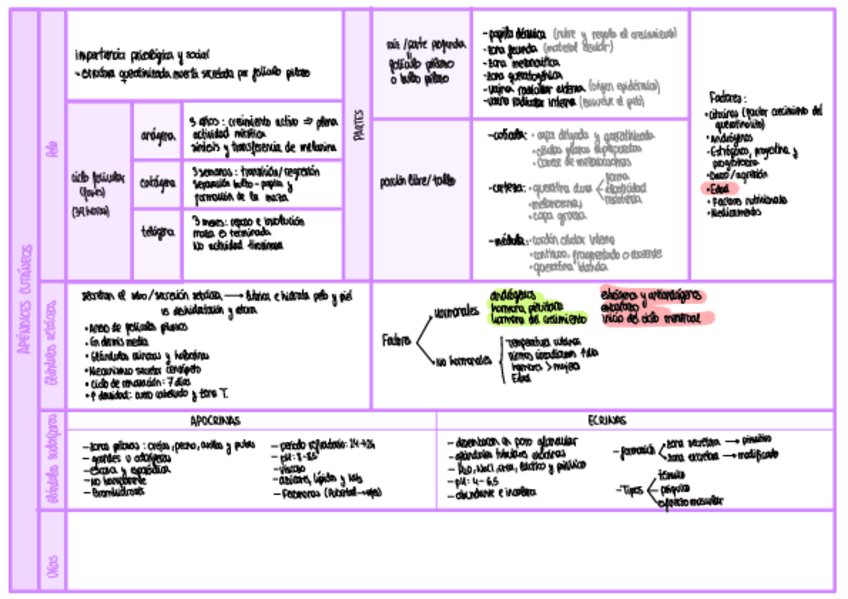 APÉNDICES CUTÁNEOS
Pelo
importancia psicológica y social
- estructura queratinizada muerta secretada por folículo piloso
ciclo folicular
(fases)
anágena
3 años: crecimiento activo ⇒ plena
actividad mitótica
síntesis y transferencia de melanina
catágena
3 semanas: transición/regresión
separación bulbo-papila y
formación de la maza
telógena
3 meses: reposo e involución
maza terminada
No actividad
PARTES
raíz/parte profunda
folículo piloso
o bulbo piloso
- papila dérmica (nutre y regula el crecimiento)
- zona fecunda (material celular)
- zona melanocítica
- zona queratogénica
- vaina radicular externa (origen epidérmico)
- vaina radicular interna (envuelve el pelo)
porción libre/tallo
- cutícula: • capa delgada y queratinizada
• células planas superpuestas
• carece de melanocitos
- corteza: • queratina dura
forma
elasticidad
resistencia
• melanosomas
• capa gruesa
- médula: • cordón celular interno
• continuo, fragmentado o ausente
• queratina blanda
Factores:
• citocinas (factor crecimiento del
queratinocito)
• Andrógenos
• Estrógenos, prolactina y
progesterona
• Daño/agresión
• Edad
• Factores nutricionales
• Medicamentos
Glándulas sebáceas
secretan el sebo/secreción sebácea, → lubrica e hidrata pelo y piel
vs deshidratación y rotura
• Anexo de folículos pilosos
• En dermis media
• Glándulas acinosas y holocrinas
• Mecanismo secretor
• Ciclo de renovación: 7 días
• ↑ densidad: cuero cabelludo y zona T.
Factores
Hormonales
andrógenos
hormona pituitaria
hormona del crecimiento
estrógenos y antiandrógenos
embarazo
inicio del ciclo menstrual
No hormonales
Temperatura cutánea
ritmos circadianos
hombres > mujeres
Edad
Glándulas sudoríparas
APOCRINAS
- zonas pilosas: orejas, pecho, axilas y pubis
- grandes u odoríferas
- escasa y esporádica
- no transparente
- Bromhidrosis
- periodo refractario: 24
- pH:
- viscoso
- azúcares, lípidos y NH₃
- Feromonas (Pubertad → vejez)
ECRINAS
- desembocan en poro glandular
- glándulas tubulares
- H₂O, NaCl, urea, láctico y pirúvico
- pH: 4-6,5
- abundante e incolora
- formación
zona secretora → primitivo
zona excretora → modificado
- Tipos
térmico
psíquico
esfuerzo muscular
Uñas